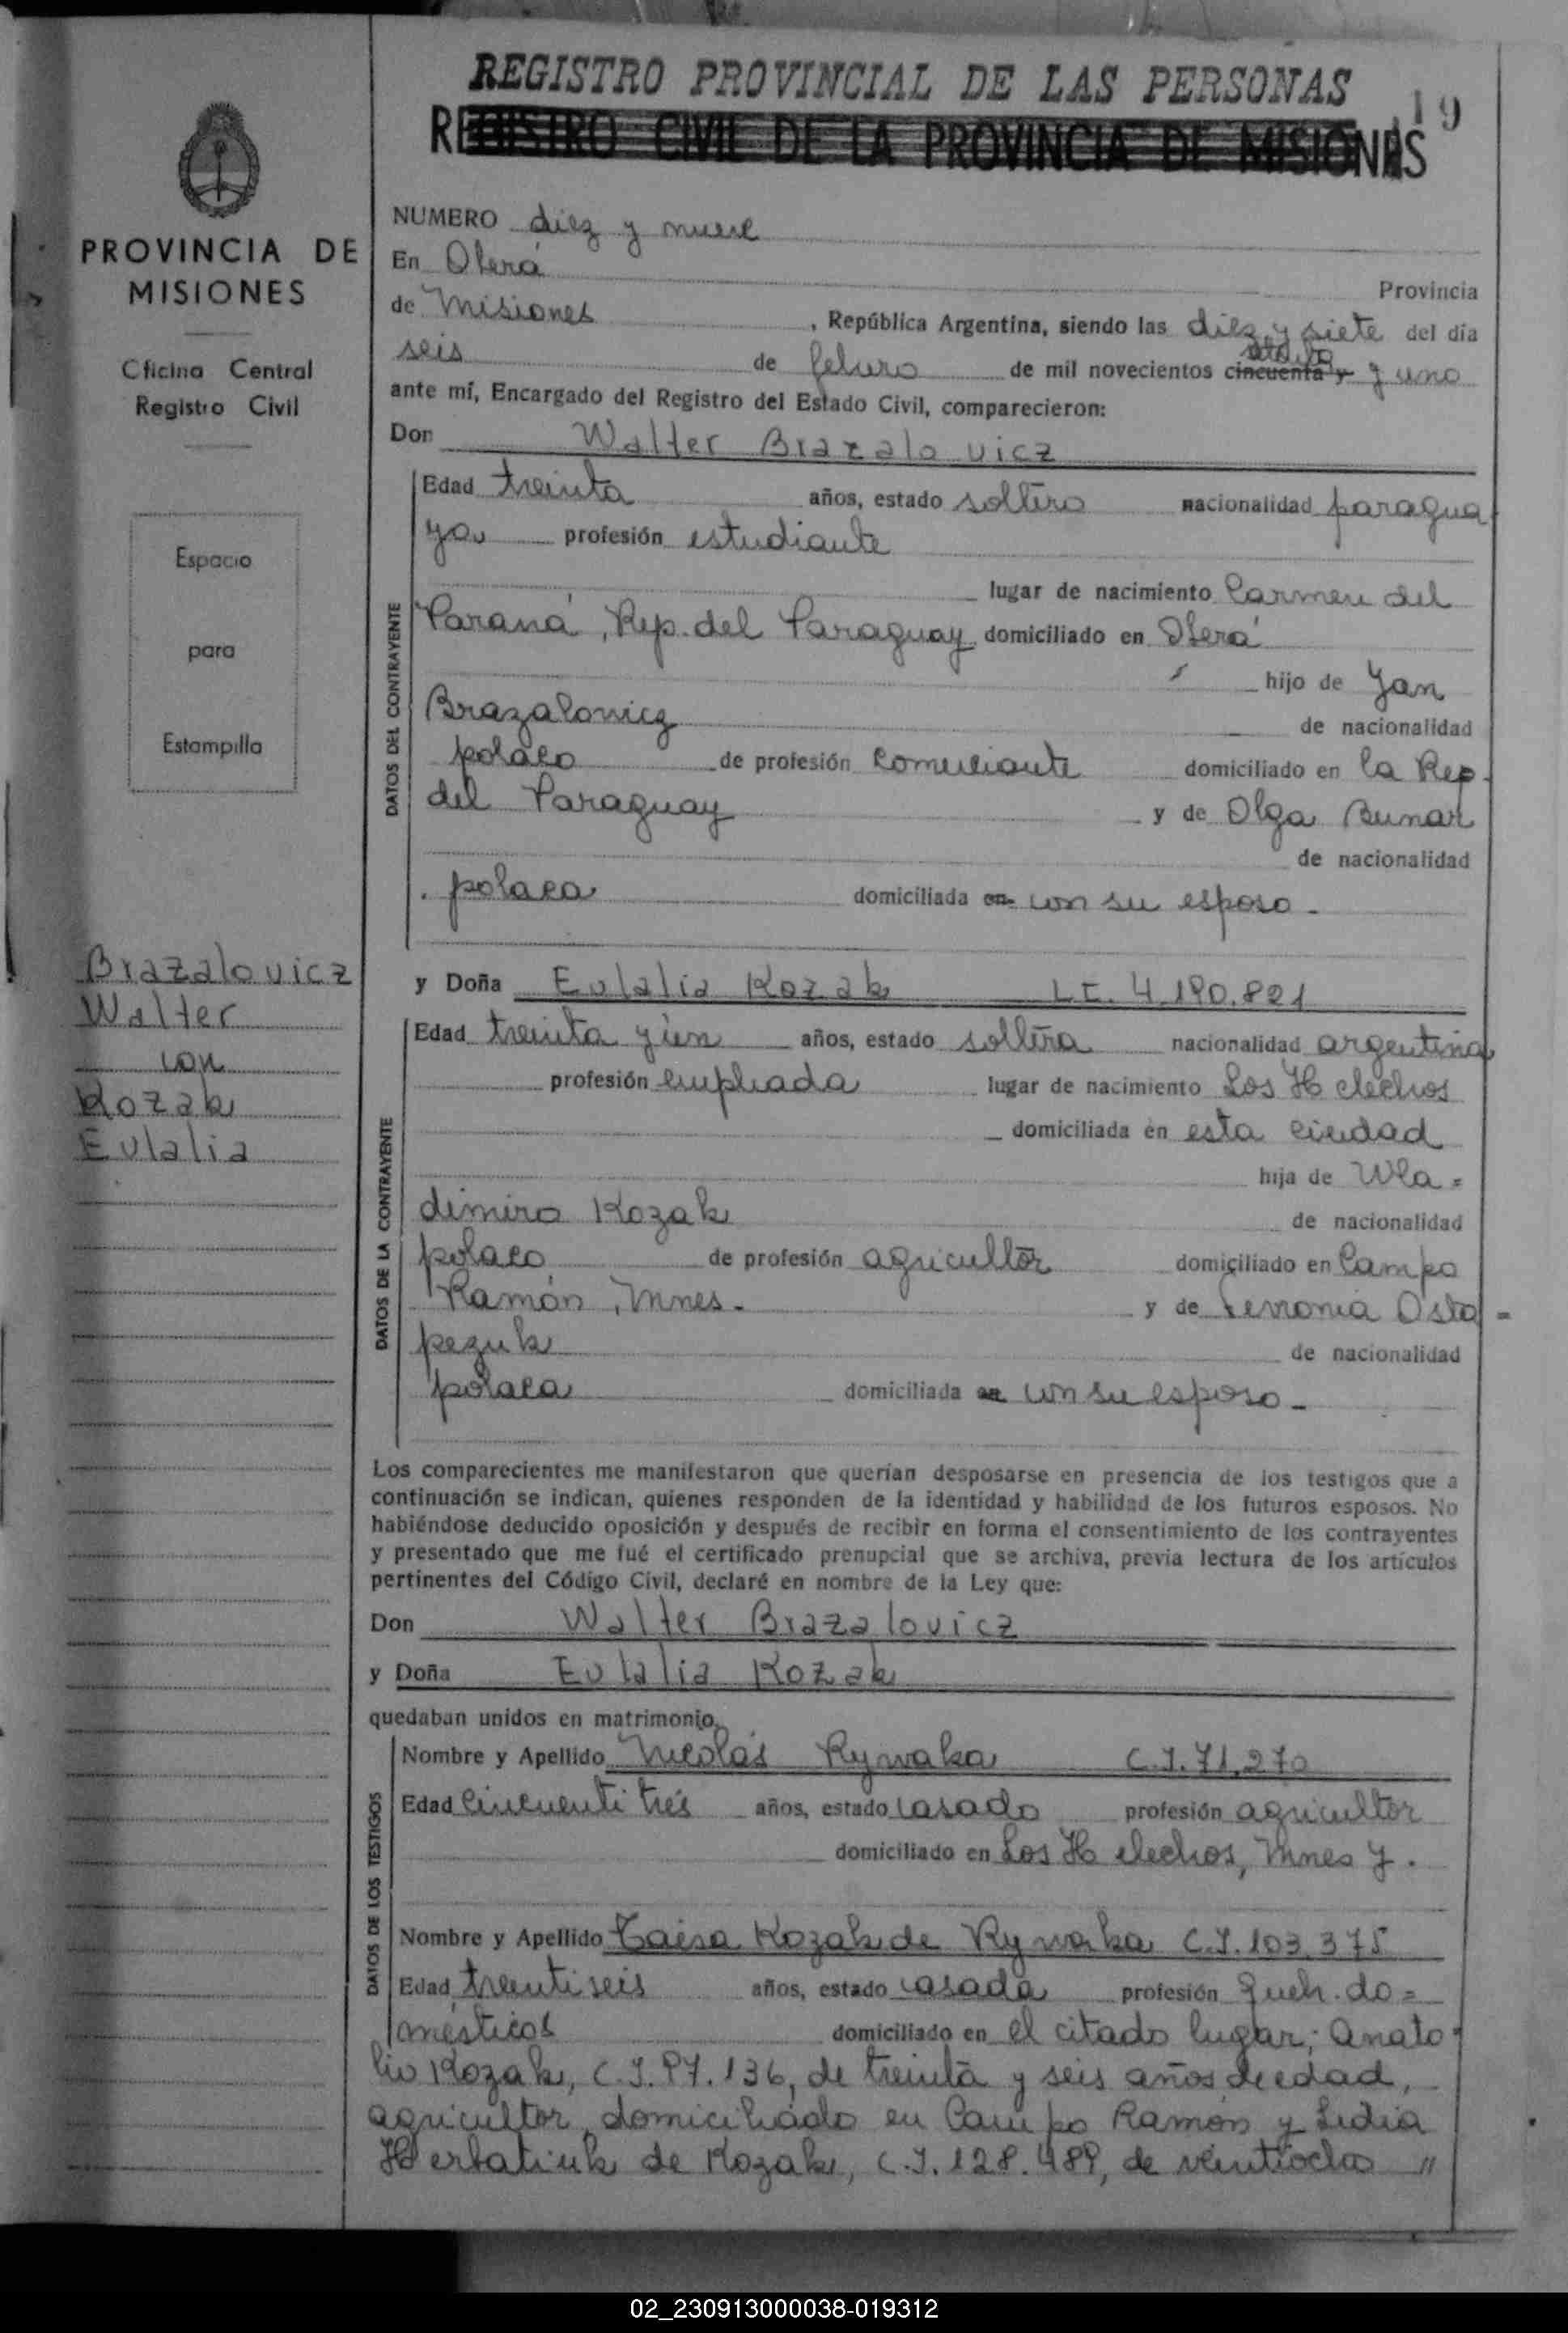 REGISTRO PROVINCIAL DE LAS PERSONAS
19
REGISTRO CIVIL DE LA PROVINCIA DE MISIONES
PROVINCIA DE
MISIONES
Oficina Central
Registro Civil
Espacio
para
Estampilla
Brazalovicz
Walter
con
Kozak
Eulalia
NUMERO diez y nueve
En Oberá
Provincia
de Misiones , República Argentina, siendo las diez y siete del día
seis de febrero de mil novecientos cincuenta y setenta y uno
ante mí, Encargado del Registro del Estado Civil, comparecieron:
Don Walter Brazalovicz
DATOS DEL CONTRAYENTE
Edad treinta años, estado soltero nacionalidad paragua
ya profesión estudiante
lugar de nacimiento Carmen del
Paraná, Rep. del Paraguay domiciliado en Oberá
hijo de Jan
Brazalovicz de nacionalidad
polaco de profesión comerciante domiciliado en la Rep.
del Paraguay y de Olga Bunar
de nacionalidad
polaca domiciliada en con su esposo -
y Doña Eulalia Kozak L.C. 4.190.821
DATOS DE LA CONTRAYENTE
Edad treinta y un años, estado soltera nacionalidad argentina
profesión empleada lugar de nacimiento Los Helechos
domiciliada en esta ciudad
hija de Wla=
dimiro Kozak de nacionalidad
polaco de profesión agricultor domiciliado en Campo
Ramón, Mnes. y de Osta=
pezuk de nacionalidad
polaca domiciliada en con su esposo -
Los comparecientes me manifestaron que querían desposarse en presencia de los testigos que a
continuación se indican, quienes responden de la identidad y habilidad de los futuros esposos. No
habiéndose deducido oposición y después de recibir en forma el consentimiento de los contrayentes
y presentado que me fué el certificado prenupcial que se archiva, previa lectura de los artículos
pertinentes del Código Civil, declaré en nombre de la Ley que:
Don Walter Brazalovicz
y Doña Eulalia Kozak
quedaban unidos en matrimonio.
DATOS DE LOS TESTIGOS
Nombre y Apellido Nicolás Rywaka C.I. 71.270
Edad cincuenti trés años, estado casado profesión agricultor
domiciliado en Los Helechos, Mnes y.
Nombre y Apellido Taisa Kozak de Rywaka C.I. 103.375
Edad treinti seis años, estado casada profesión queh. do=
mésticos domiciliado en el citado lugar; Anato=
lio Kozak, C.I. 97.136, de treinta y seis años de edad,
agricultor, domiciliado en Campo Ramón y Lidia
Herbatiuk de Kozak, C.I. 128.489, de veintiocho //
02_230913000038-019312